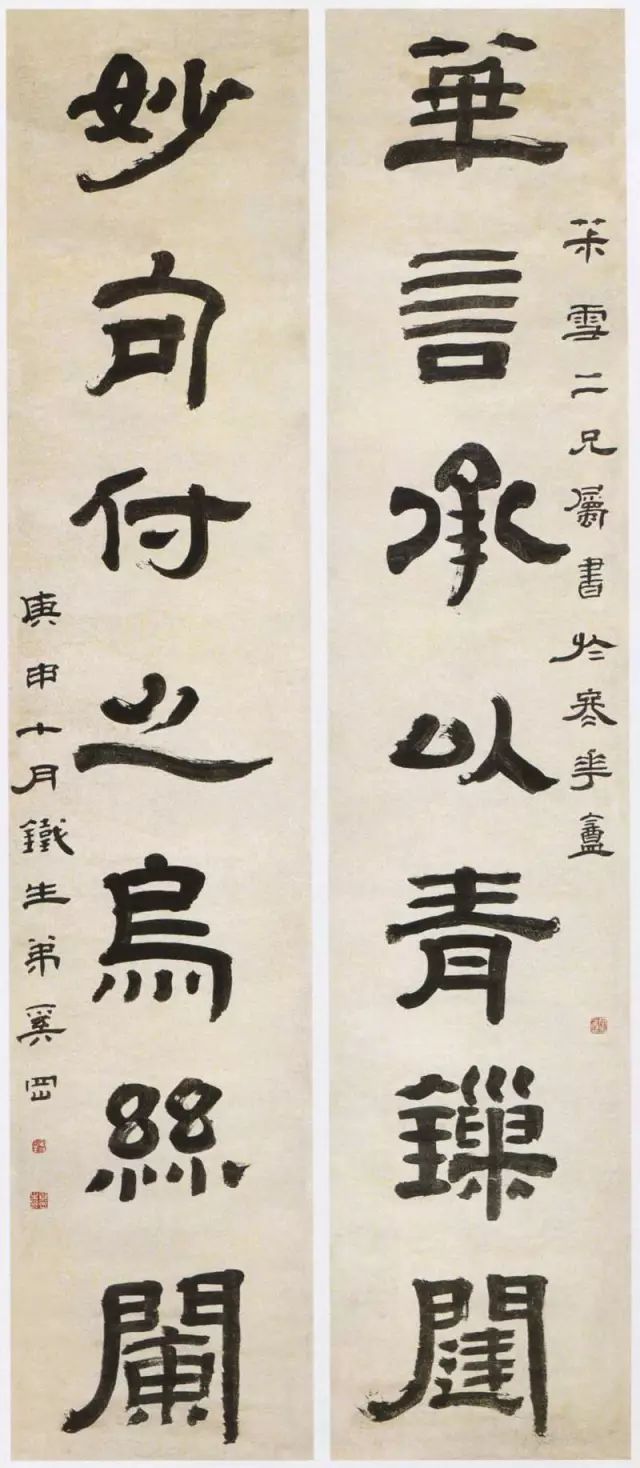 華言承以青鏁闥
雪二兄屬書於冬華盦
妙句付之烏絲闌
庚申十月鐵生弟奚岡